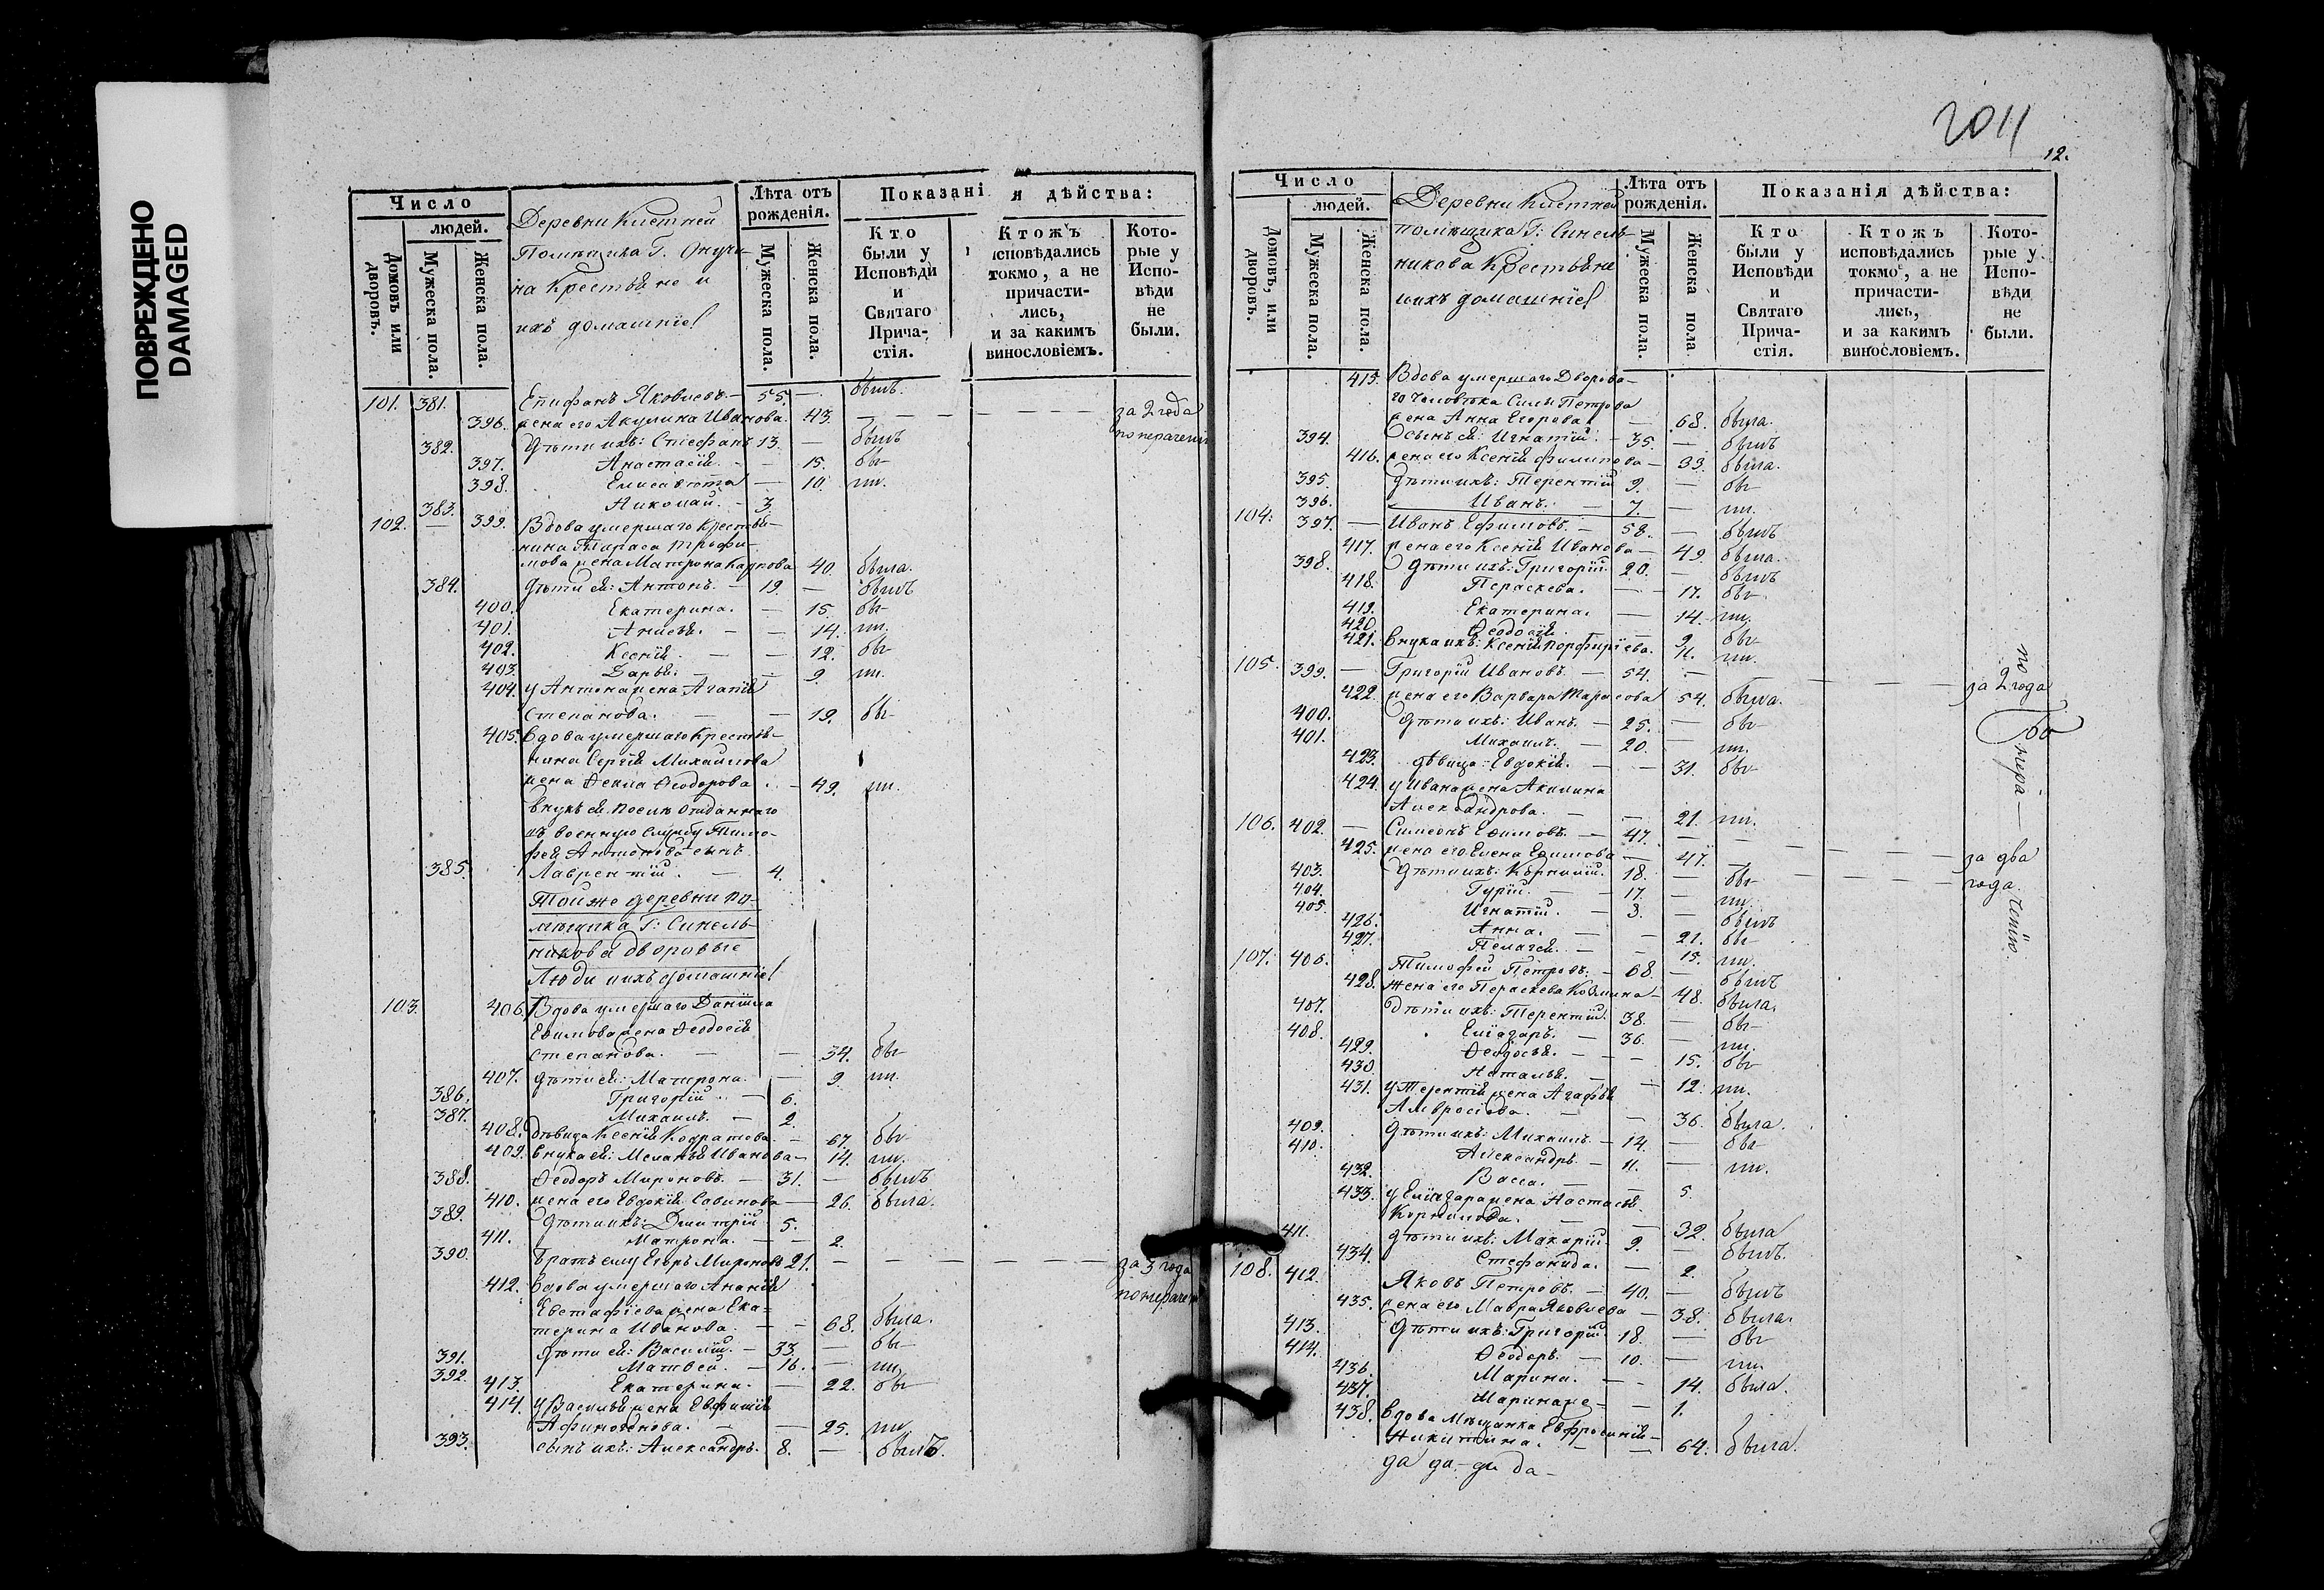 ПОВРЕЖДЕНО
DAMAGED
Число
людей.
Домовъ или дворовъ.
Мужеска пола.
Женска пола.
Деревни Клетней
Помѣщика Г. Онучи-
на Крестьяне и
ихъ домашніе
Лѣта отъ рожденія.
Мужеска пола.
Женска пола.
Показанія дѣйства:
Кто были у Исповѣди и Святаго Причастія.
Ктожъ исповѣдались токмо, а не причастились, и за какимъ винословіемъ.
Которые у Исповѣди не были.
101. 381. Епифанъ Яковлевъ. — 55. — былъ.
396. жена его Акулина Иванова. 43. — — — — за 2 года
по нерачению
382. Дѣти ихъ: Стефанъ 13. — былъ
397. Анастасія. — — 15. бы-
398. Елисавета — 10. ли.
383. Николай. — 3.
102. — 399. Вдова умершаго крестья-
нина Тараса Трофи-
мова жена Матрона Карпова 40. была.
384. Дѣти ея: Антонъ. — 19. — былъ
400. Екатерина. — 15. бы-
401. Анисья. — — 14. ли.
402. Ксенія. — — 12. бы-
403. Дарья. — — 9. ли.
404. у Антона жена Агапія
Степанова. — — 19. бы-
405. Вдова умершаго крестья-
нина Сергія Михайлова
жена Фекла Феодорова. — 49. ли.
внукъ ея после отданнаго
въ военную службу Тимо-
фея Антонова сынъ
385. Лаврентій. — 4.
Той же деревни по-
мѣщика Г: Синель-
никова дворовые
Люди и ихъ домашніе
103. 406. Вдова умершаго Даніила
Ефимова жена Феодосія
Степанова. — — 34. бы-
407. дѣти ея: Матрона. — 9. ли.
386. Григорій. — 6.
387. Михаилъ. — 2.
408. Дѣвица Ксенія Кодратова. — 67. бы-
409. внука ея: Меланья Иванова — 14. ли.
388. Феодоръ Мироновъ. — 31. — былъ
410. жена его Евдокія Савинова — 26. была.
389. Дѣти ихъ: Дмитрій 5.
411. Матрона. — — 2.
390. Братъ ему Егоръ Мироновъ 21. — — — — — за 3 года
по нераче
412. Вдова умершаго Ананія
Евстафіева жена Ека-
терина Иванова. — — 68. была.
391. Дѣти ея: Василій. — 33. — бы-
392. Матвей. — 16. — ли.
413. Екатерина. — 22. бы-
414. у Василья жена Евфимія
Афиногенова. — — 25. ли.
393. сынъ ихъ: Александръ. 8. — былъ.
2011
12.
Число
людей.
Домовъ, или дворовъ.
Мужеска пола.
Женска пола.
Деревни Клетней
помѣщика Г: Синель-
никова Крестьяне
и ихъ домашніе
Лѣта отъ рожденія.
Мужеска пола.
Женска пола
Показанія дѣйства:
Кто были у Исповѣди и Святаго Причастія.
Ктожъ исповѣдались токмо, а не причастились, и за какимъ винословіемъ.
Которые у Исповѣди не были.
415. Вдова умершаго Дворова-
го человѣка Силы Петрова
жена Анна Егорова — 68. была.
394. сынъ ея: Игнатій. — 35. — былъ
416. жена его Ксенія Филипова — 33. была.
395. Дѣти ихъ: Терентій 9. — бы-
396. Иванъ. — 7. — ли.
104. 397. — Иванъ Ефимовъ. — 58. — былъ
417. жена его Ксенія Иванова — 49. была.
398. Дѣти ихъ: Григорій. 20. — былъ
418. Параскева. — — 17. бы-
419. Екатерина. — 14. ли.
420. Феодосія. — — 9. бы-
421. внука ихъ: Ксенія Порфиріева. 11. ли.
105. 399. — Григорій Ивановъ. — 54. — — — — за 2 года
422. жена его Варвара Тарасова 54. была.
400. Дѣти ихъ: Иванъ. — 25. — бы-
401. Михаилъ. — 20. — ли.
423. дѣвица Евдокія. — — 31. бы-
424. у Ивана жена Акилина
Александрова. — — 21. ли.
106. 402. — Симеонъ Ефимовъ. — 47. — — — —
425. жена его Елена Ефимова — 47. — — — — за два
403. Дѣти ихъ: Корнилій. 18. — бы- года.
404. Гурій. — — 17. — ли.
405. Игнатій. — 3. — былъ
426. Анна. — — 21. бы-
427. Пелагея. — — 15. ли.
по нера-
ченію.
107. 406. Тимофей Петровъ. — 68. — былъ
428. жена его Параскева Козмина — 48. была.
407. Дѣти ихъ: Терентій. 38. — бы-
408. Еліазаръ. — 36. — ли.
429. Феодосья. — — 15. бы-
430. Наталья. — — 12. ли.
431. у Терентія жена Агафья
Амвросіева. — — 36. была.
409. Дѣти ихъ: Михаилъ. — 14. — бы-
410. Александръ. — 11. — ли.
432. Васса. — — 5.
433. у Еліазара жена Настасья
Корнилова. — — 32. была
411. дѣти ихъ: Макарій. 9. — былъ.
434. Стефанида. — 2.
108. 412. Яковъ Петровъ. — 40. — былъ
435. жена его Мавра Яковлева — 38. была.
413. Дѣти ихъ: Григорій. 18. — бы-
414. Феодоръ. — 10. — ли.
436. Марина. — — 14. была.
437. Марина же — — 1.
438. Вдова Мѣщанка Евфросинія
Никитина. — — 64. была.